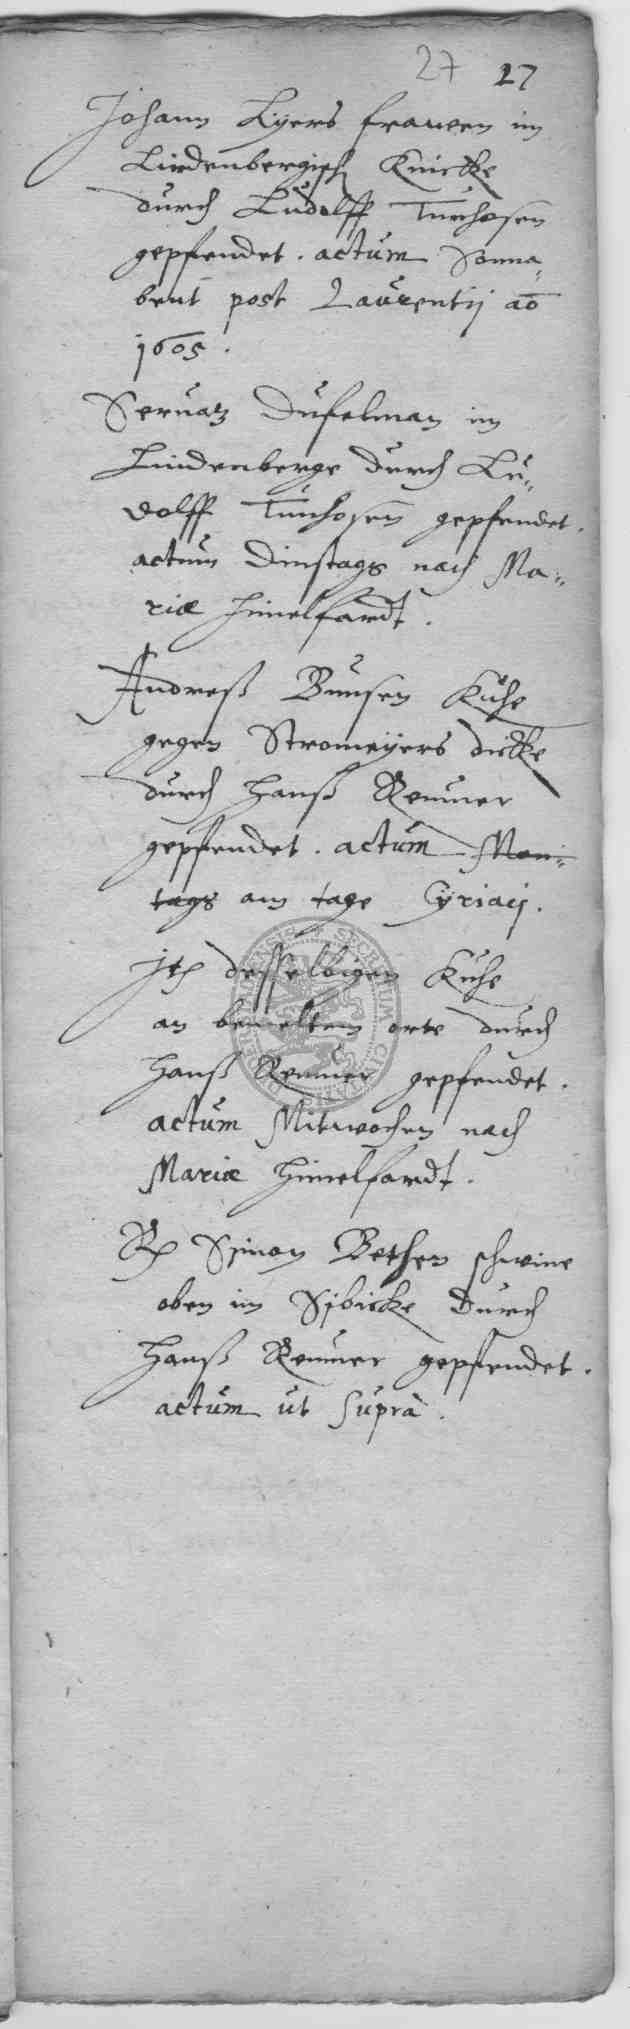 27 27
Johann Lÿers frawen im
Lindenbergisch Knicke
durch Ludolff Tünhosen
gepfendet. actum Sonna-
bent post Laurentij ao
1605.
Servatz Dufelman im
Lindenberge durch Lu-
dolff Tünhosen gepfendet.
actum Dinstags nach Ma-
riæ himelfardt.
Andreß Bunsen Kühe
gegen Stromeÿers dicke
durch Hanß Remmer
gepfendet. actum Mon-
tags am tage Cÿriacj.
Jtem desselbigen Kühe
an bemeltem orte durch
Hanß Remmer gepfendet.
actum Mitwochen nach
Mariæ himelfardt.
Simon Bethen schweine
oben im durch
Hanß Remmer gepfendet.
actum ut supra.